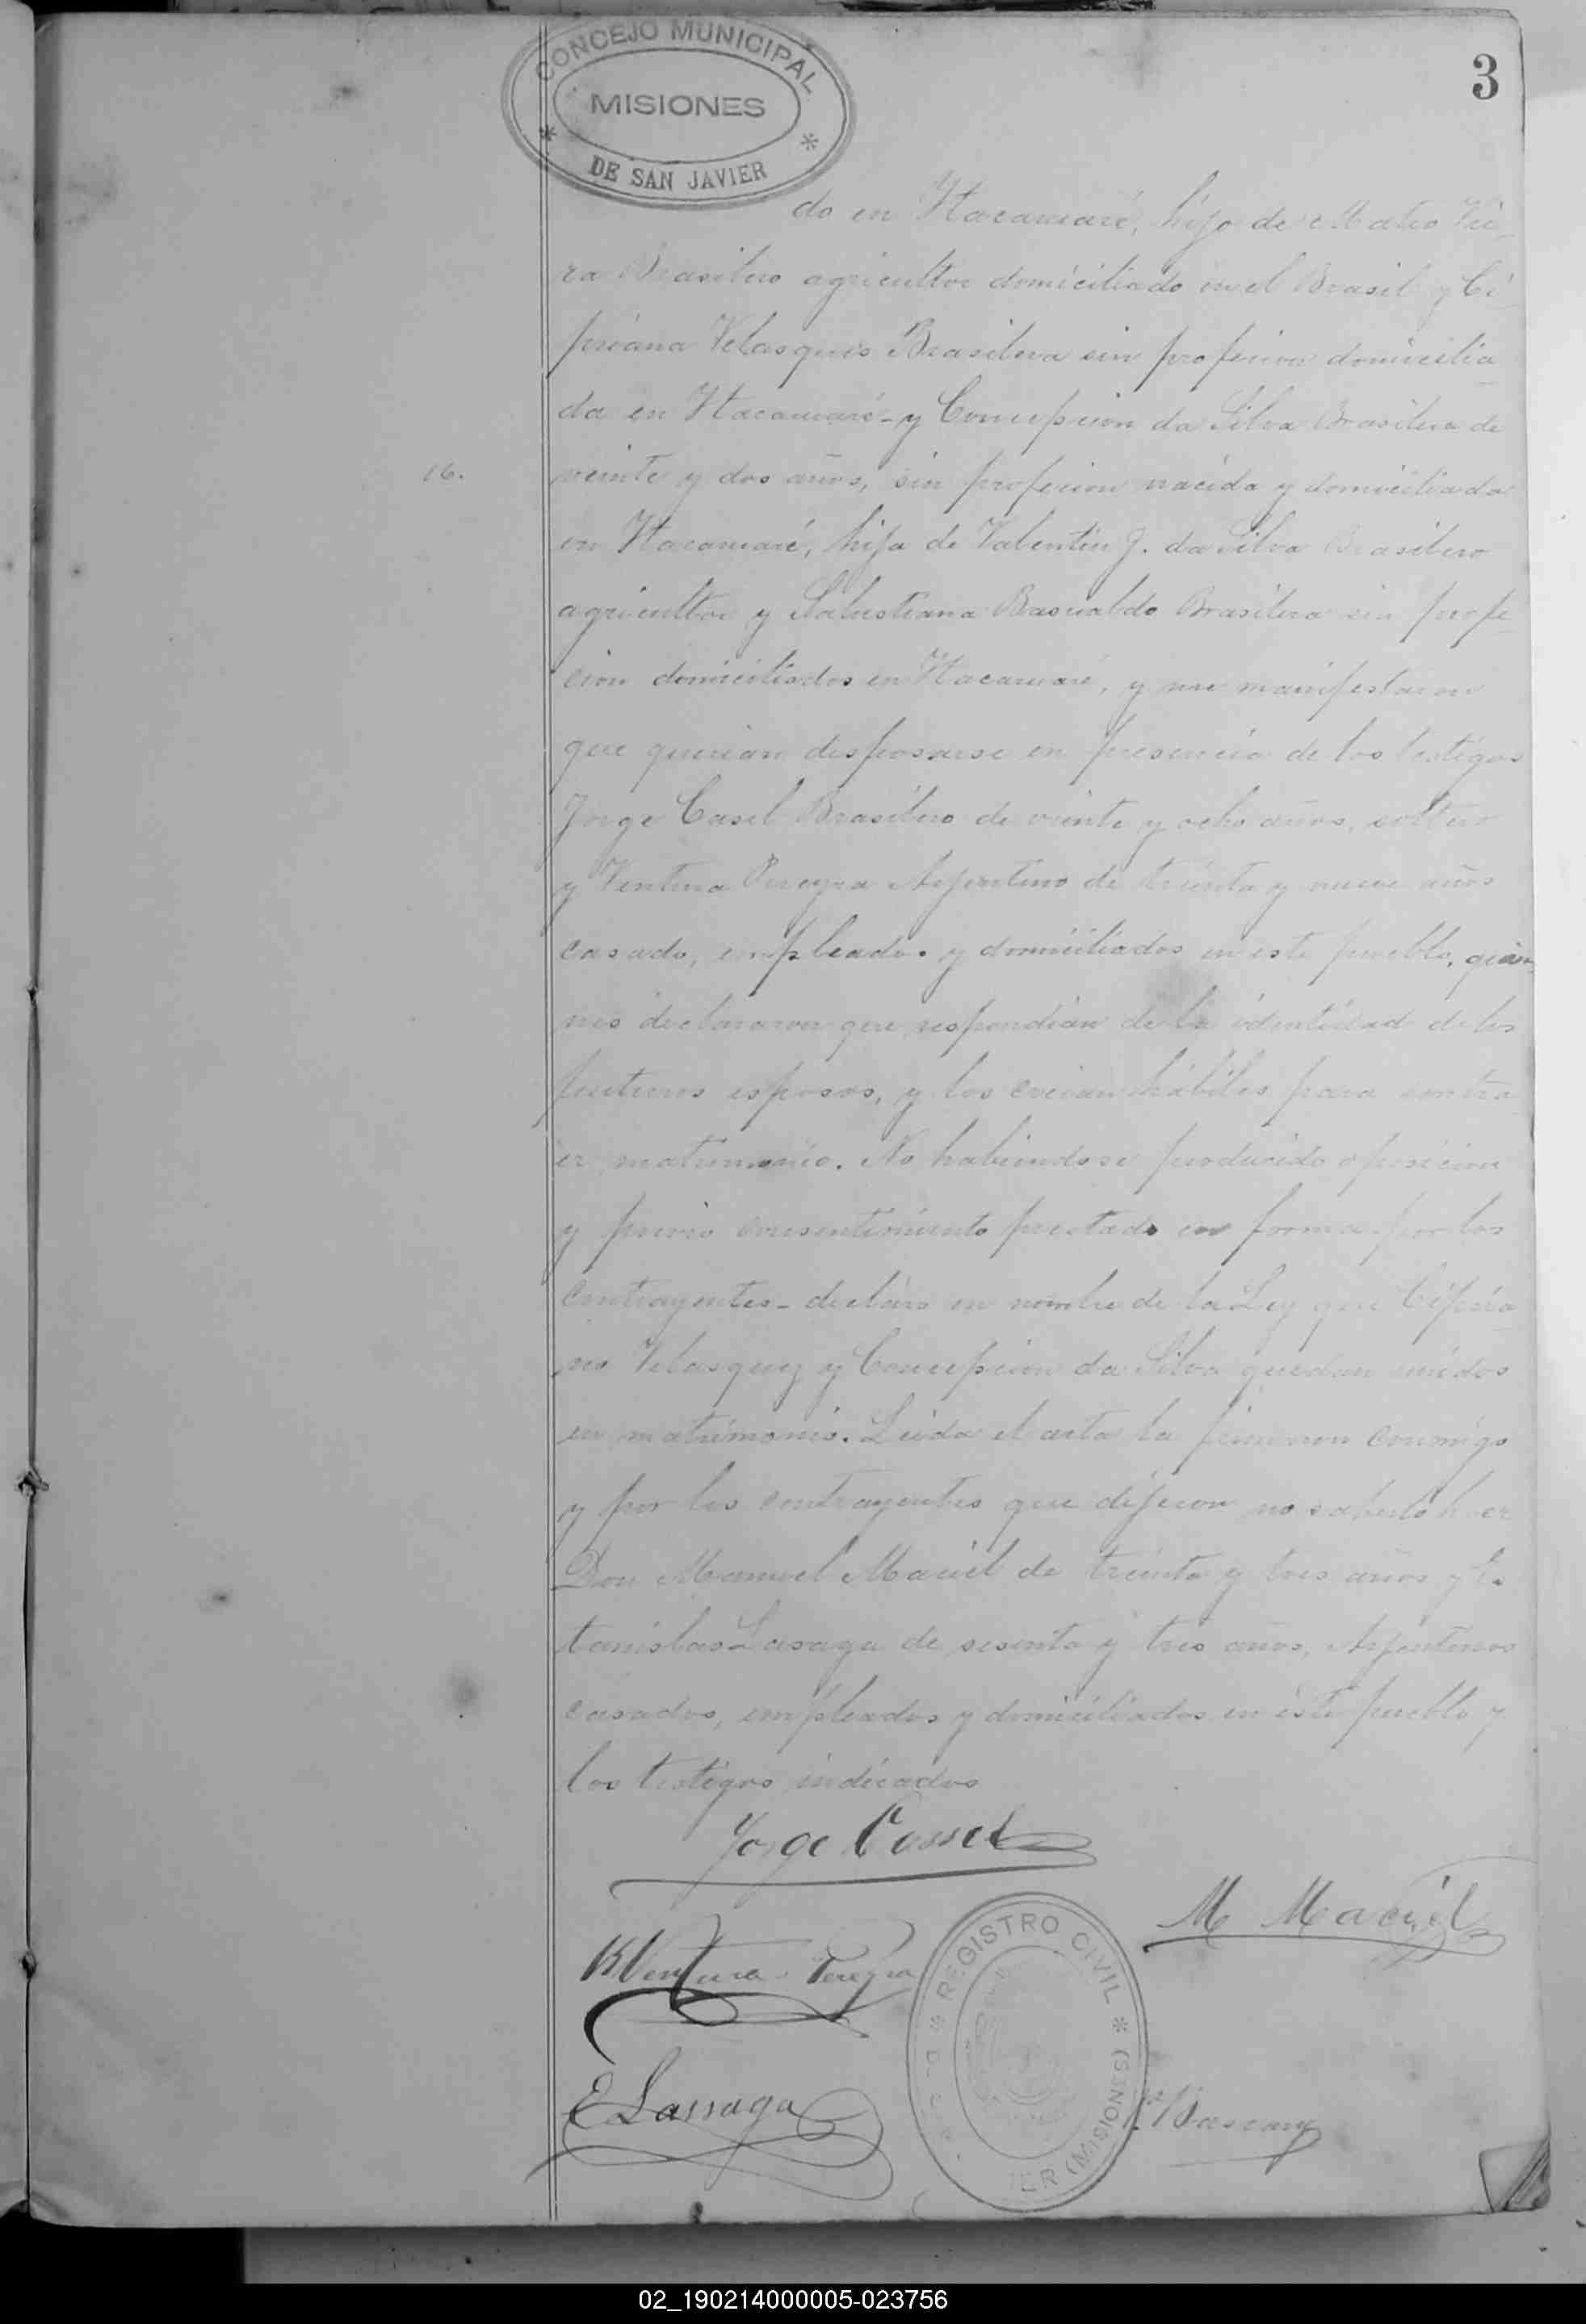 CONCEJO MUNICIPAL
MISIONES
DE SAN JAVIER
3
do en Itacaruaré, hijo de Mateo Vie-
ra Brasilero agricultor domiciliado en el Brasil y Ci-
priana Velasques Brasilera sin profecion domicilia-
da en Itacaruaré - y Concepcion da Silva Brasilera de
16.
veinte y dos años, sin profecion nacida y domiciliada
en Itacaruaré, hija de Valentin J. da Silva Brasilero
agricultor y Salustiana Basualdo Brasilera sin profe-
cion domiciliados en Itacaruaré, y me manifestaron
que querian desposarse en presencia de los testigos
Jorge Casel Brasilero de veinte y ocho años, soltero
y Ventura Pereyra Argentino de treinta y nueve años
casado, empleados y domiciliados en este pueblo, quie-
nes declararon que respondian de la identidad de los
futuros esposos, y los creian hábiles para contra
er matrimonio. No habiendose producido oposicion
y previo consentimiento prestado en forma por los
contrayentes - declaro en nombre de la Ley que Cipria-
no Velasquez y Concepcion da Silva quedan unidos
en matrimonio. Leida el acta la firmaron conmigo
y por los contrayentes que dijeron no saberlo hacer
Don Manuel Maciel de treinta y tres años y Es
tanislao Lasaga de sesenta y tres años, Argentinos
casados, empleados y domiciliados en este pueblo y
los testigos indicados
Jorge Cassel
M Maciel
BVentura Pereyra
REGISTRO CIVIL
(MISIONES)
E Lassaga
02_190214000005-023756